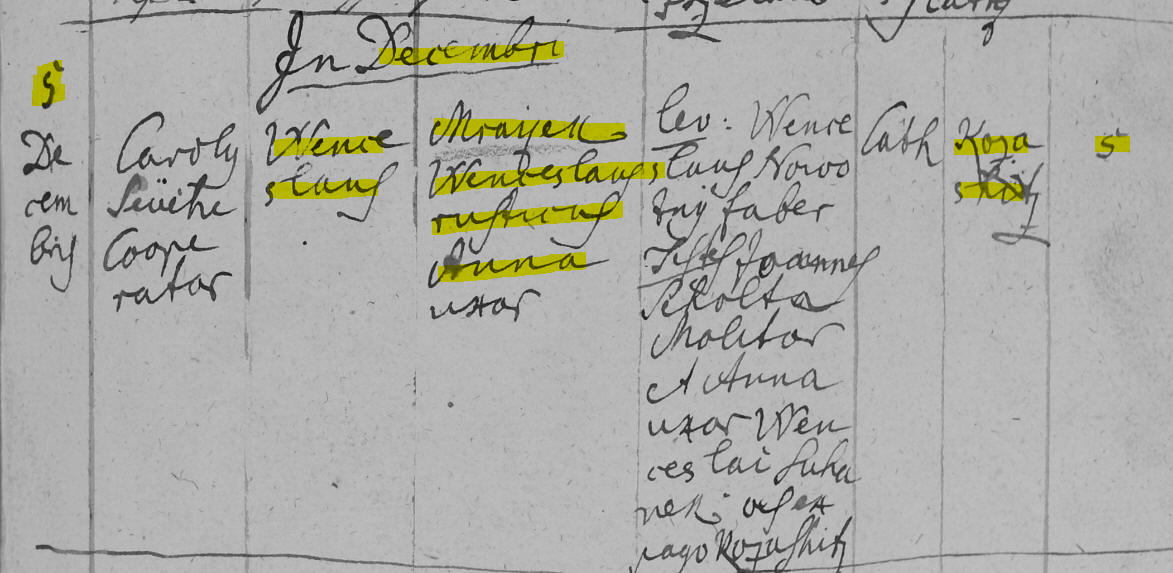 In Decembri
5
De
cem
bris
Caroly
Coope
rator
Wence
slaus
Mraijek
Wenceslaus
rusticus
Anna
uxor
lev: Wence
slaus Nowo
tnij faber
Testes Joannes
Molitor
et Anna
uxor Wen
ces lai Suha
nek: oes ex
pago Kozushitz
Cath
Koza
shitz
5